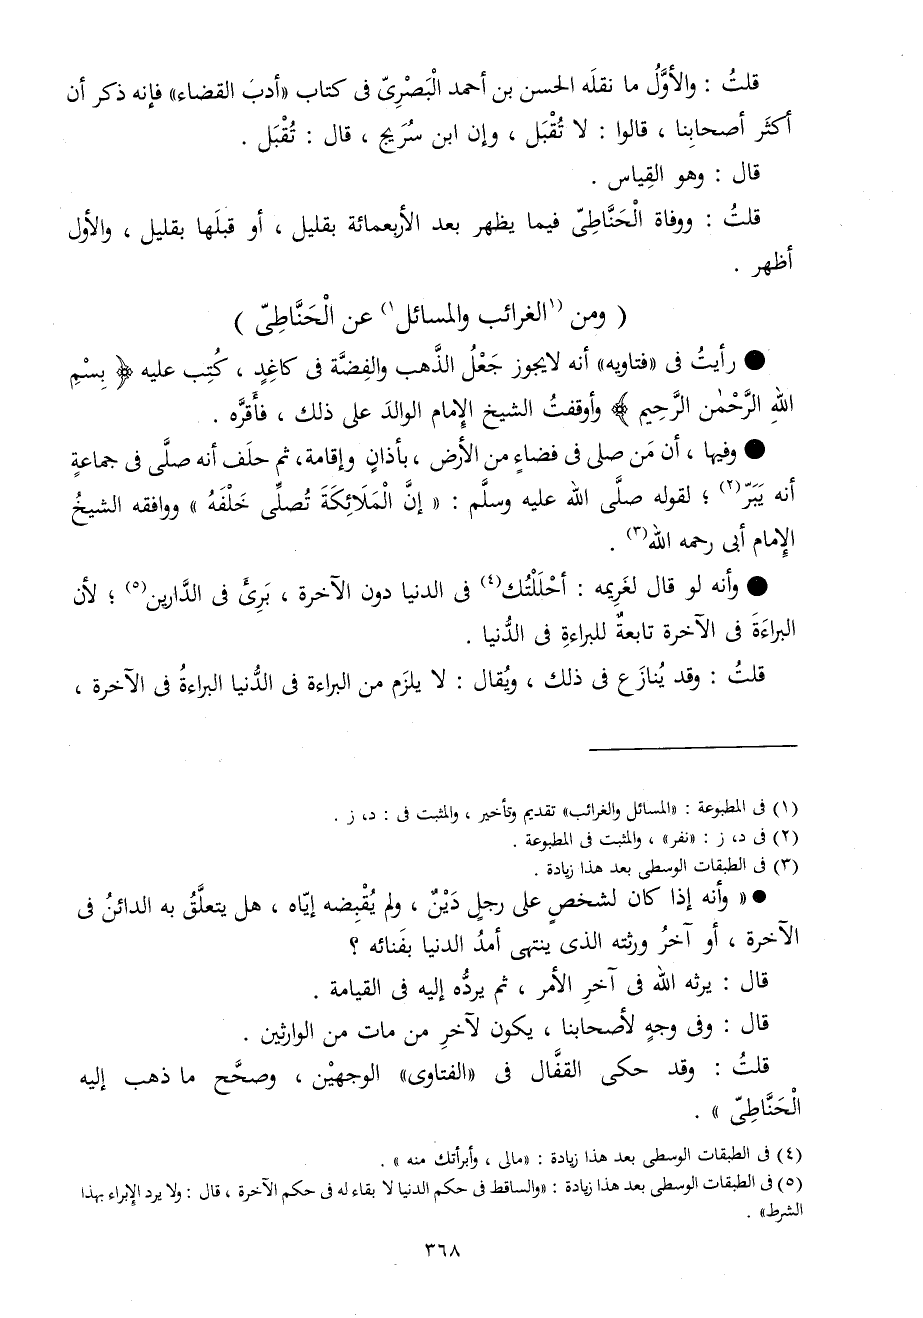 قلتُ : والأوَّلُ ما نقلَه الحسن بن أحمد الْبَصْرِىّ فى كتاب «أدبَ القضاء» فإنه ذكر أن
أكثَر أصحابِنا ، قالوا : لا تُقْبَل ، وإن ابن سُرَيج ، قال : تُقْبَل .
قال : وهو القِياس .
قلتُ : ووفاة الْحَنَّاطِىّ فيما يظهر بعد الأربعمائة بقليل ، أو قبلَها بقليل ، والأول
أظهر .
( ومن (١الغرائب والمسائل١) عن الْحَنَّاطِىّ )
● رأيتُ فى «فتاويه» أنه لايجوز جَعْلُ الذَّهب والفِضَّة فى كاغِدٍ ، كُتِب عليه ﴿ بِسْمِ
اللهِ الرَّحْمٰنِ الرَّحِيمِ ﴾ وأوقفتُ الشيخ الإمام الوالدَ على ذلك ، فأَقرَّه .
● وفيها ، أن مَن صلى فى فضاءٍ من الأرض ، بأذانٍ وإقامة، ثم حلَف أنه صلَّى فى جماعةٍ
أنه يَبَرّ(٢) ؛ لقوله صلَّى الله عليه وسلَّم : « إنَّ الْمَلَائِكَةَ تُصلِّى خَلْفَهُ » ووافقه الشيخُ
الإمام أبى رحمه الله(٣) .
● وأنه لو قال لغَريمه : أحْلَلْتُك(٤) فى الدنيا دون الآخرة ، بَرِئَ فى الدَّارين(٥) ؛ لأن
البراءَةَ فى الآخرة تابعةٌ للبراءةِ فى الدُّنيا .
قلتُ : وقد يُنازَع فى ذلك ، ويُقال : لا يلزَم من البراءة فى الدُّنيا البراءةُ فى الآخرة ،
(١) فى المطبوعة : «المسائل والغرائب» تقديم وتأخير ، والمثبت فى : د، ز .
(٢) فى د، ز : «نفر» ، والمثبت فى المطبوعة .
(٣) فى الطبقات الوسطى بعد هذا زيادة .
● « وأنه إذا كان لشخصٍ على رجلٍ دَيْنٌ ، ولم يُقْبِضه إيّاه ، هل يتعلَّقُ به الدائنُ فى
الآخرة ، أو آخرُ ورثته الذى ينتهى أمدُ الدنيا بفَنائه ؟
قال : يرثه الله فى آخرِ الأمر ، ثم يردُّه إليه فى القيامة .
قال : وفى وجهٍ لأصحابنا ، يكون لآخرِ من مات من الوارثين .
قلتُ : وقد حكى القفَّال فى «الفتاوى» الوجهيْن ، وصحَّح ما ذهب إليه
الْحَنَّاطِىّ » .
(٤) فى الطبقات الوسطى بعد هذا زيادة : «مالى ، وأبرأتك منه » .
(٥) فى الطبقات الوسطى بعد هذا زيادة : «والساقط فى حكم الدنيا لا بقاء له فى حكم الآخرة ، قال : ولا يرد الإبراء بهذا
الشرط» .
٣٦٨